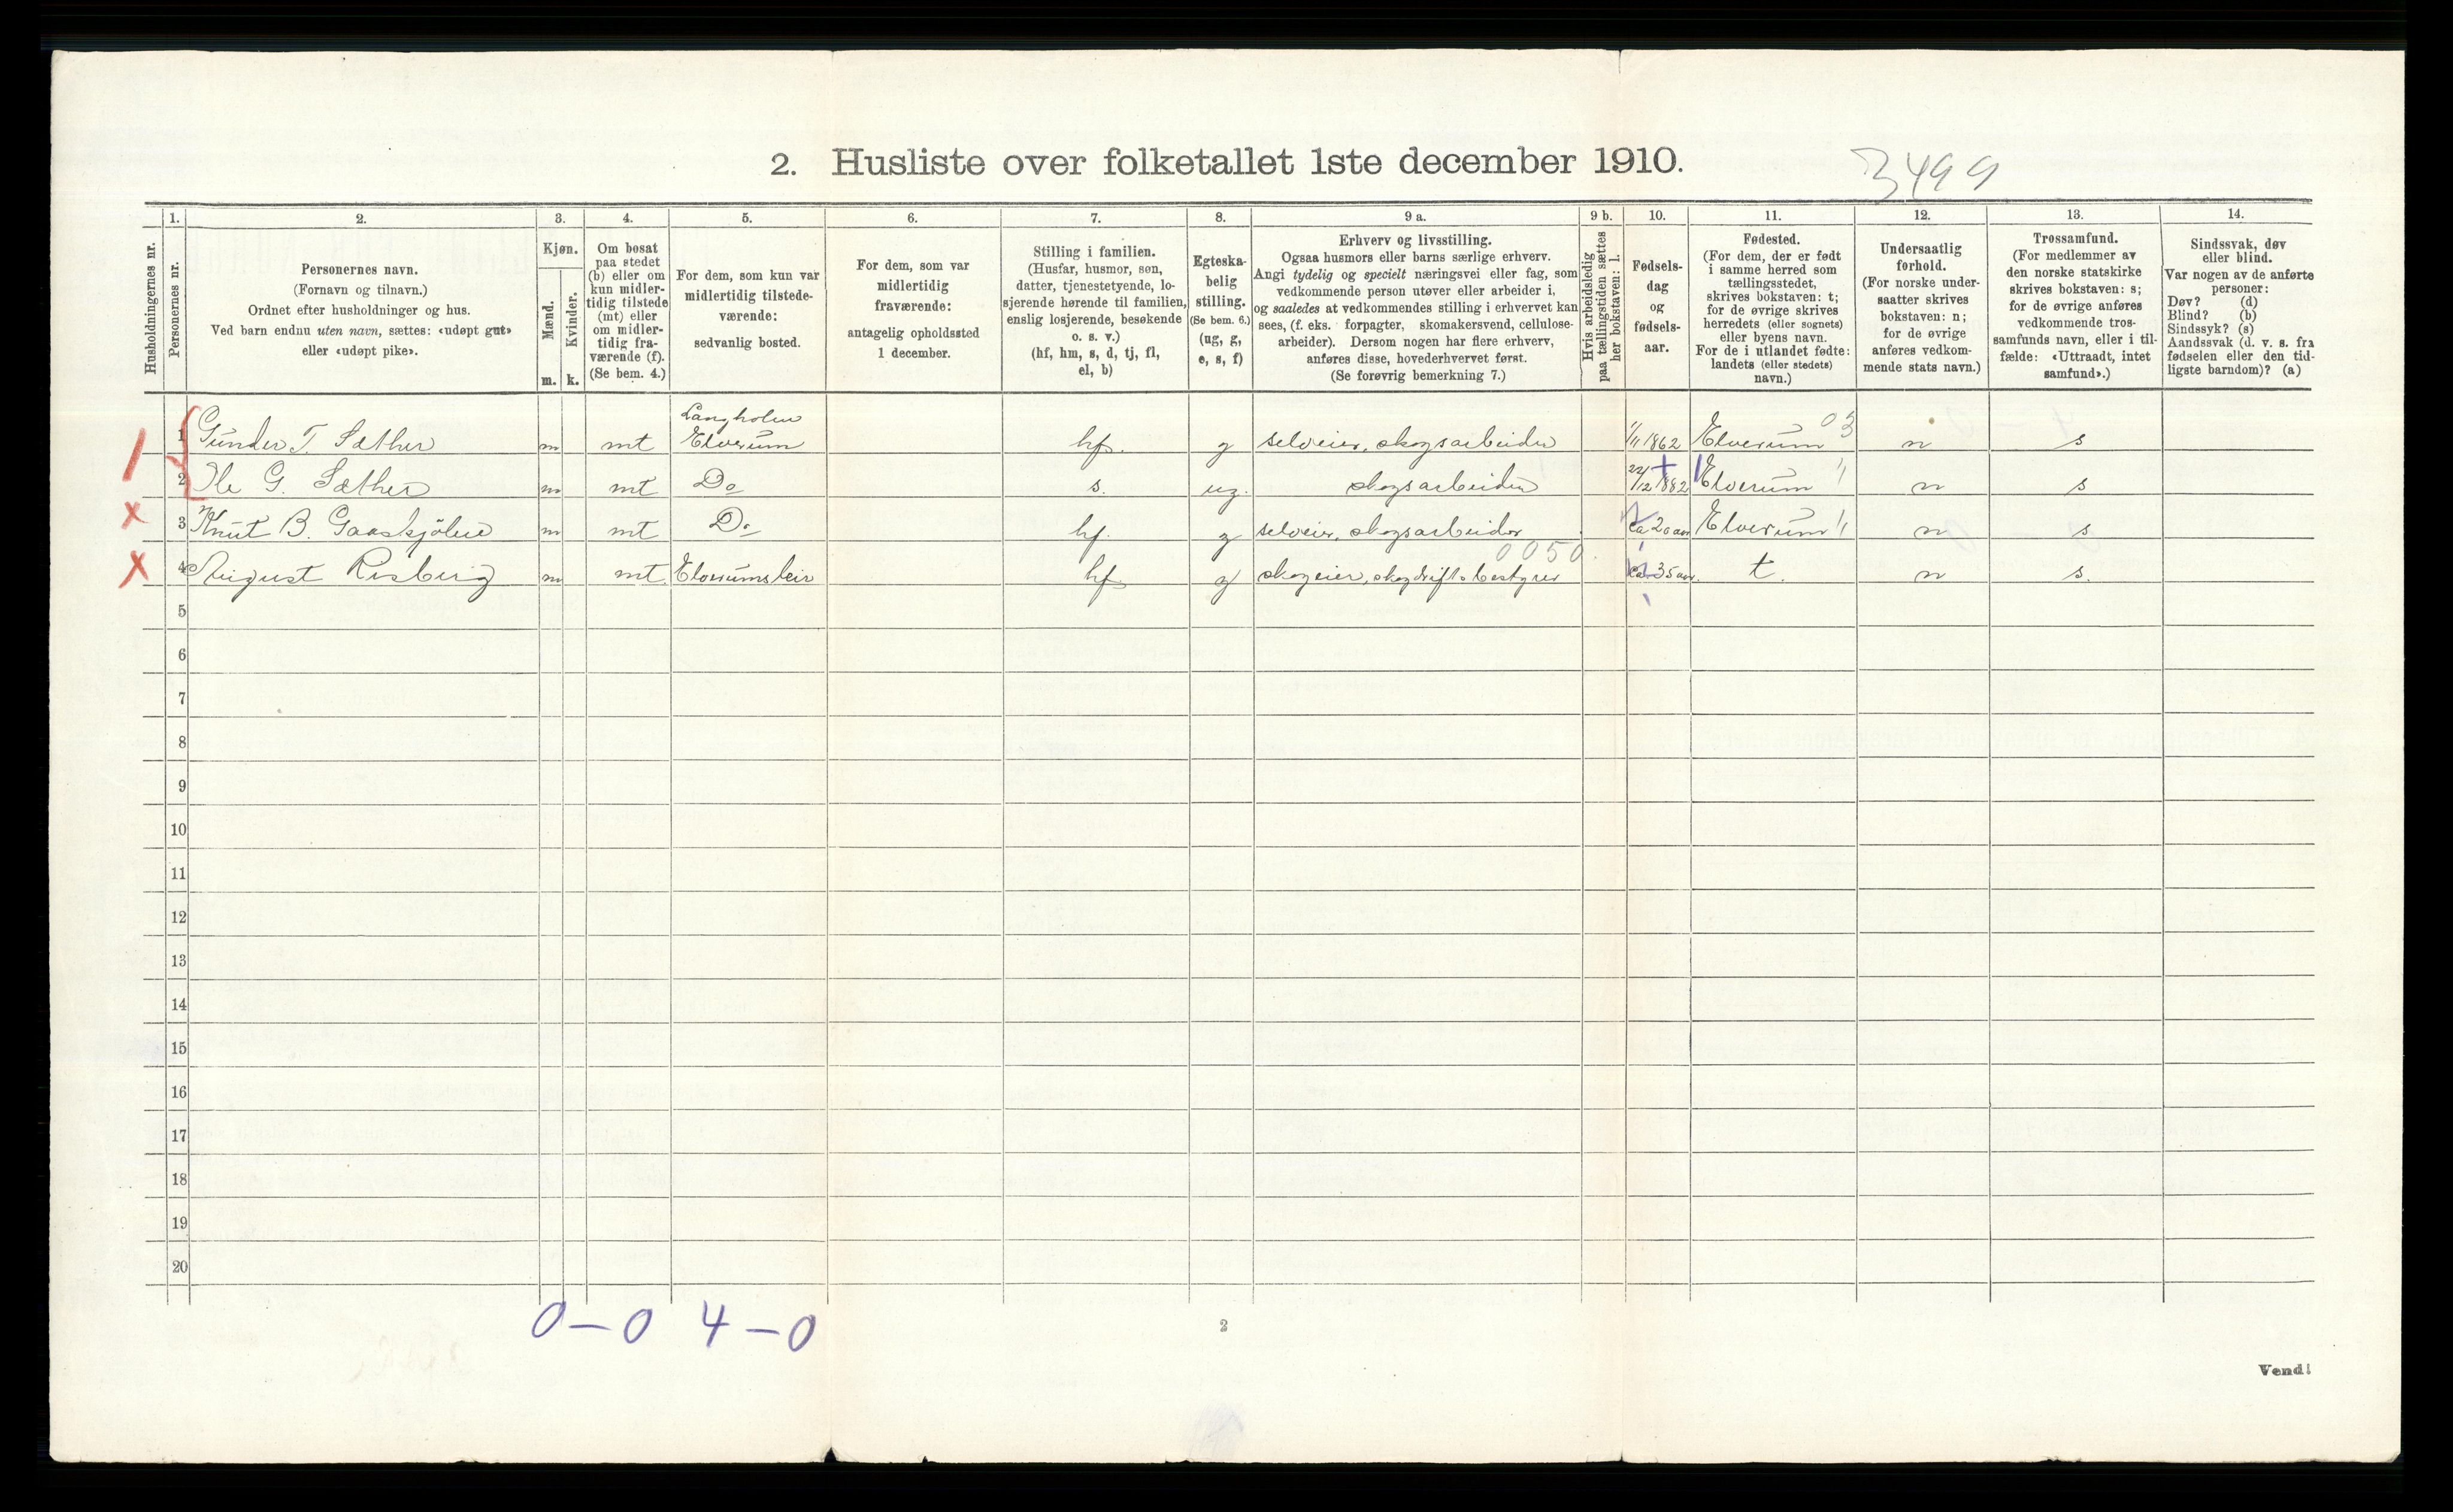 2. Husliste over folketallet 1ste december 1910.
3499
Husholdningernes nr.
1.
Personernes nr.
2.
Personernes navn.
(Fornavn og tilnavn.)
Ordnet efter husholdninger og hus.
Ved barn endnu uten navn, sættes: «udøpt gut»
eller «udøpt pike».
3.
Kjøn.
Mænd.
Kvinder.
m. k.
4.
Om bosat
paa stedet
(b) eller om
kun midler-
tidig tilstede
(mt) eller
om midler-
tidig fra-
værende (f).
(Se bem. 4.)
5.
For dem, som kun var
midlertidig tilstede-
værende:
sedvanlig bosted.
6.
For dem, som var
midlertidig
fraværende:
antagelig opholdssted
1 december.
7.
Stilling i familien.
(Husfar, husmor, søn,
datter, tjenestetyende, lo-
sjerende hørende til familien,
enslig losjerende, besøkende
o. s. v.)
(hf, hm, s, d, tj, fl,
el, b)
8.
Egteska-
belig
stilling.
(Se bem. 6.)
(ug, g,
e, s, f)
9 a.
Erhverv og livsstilling.
Ogsaa husmors eller barns særlige erhverv.
Angi tydelig og specielt næringsvei eller fag, som
vedkommende person utøver eller arbeider i,
og saaledes at vedkommendes stilling i erhvervet kan
sees, (f. eks. forpagter, skomakersvend, cellulose-
arbeider). Dersom nogen har flere erhverv,
anføres disse, hovederhvervet først.
(Se forøvrig bemerkning 7.)
9 b.
Hvis arbeidsledig
paa tællingstiden sættes
her bokstaven: l.
10.
Fødsels-
dag
og
fødsels-
aar.
11.
Fødested.
(For dem, der er født
i samme herred som
tællingsstedet,
skrives bokstaven: t;
for de øvrige skrives
herredets (eller sognets)
eller byens navn.
For de i utlandet fødte:
landets (eller stedets)
navn.)
12.
Undersaatlig
forhold.
(For norske under-
saatter skrives
bokstaven: n;
for de øvrige
anføres vedkom-
mende stats navn.)
13.
Trossamfund.
(For medlemmer av
den norske statskirke
skrives bokstaven: s;
for de øvrige anføres
vedkommende tros-
samfunds navn, eller i til-
fælde: «Uttraadt, intet
samfund».)
14.
Sindssvak, døv
eller blind.
Var nogen av de anførte
personer:
Døv? (d)
Blind? (b)
Sindssyk? (s)
Aandssvak (d. v. s. fra
fødselen eller den tid-
ligste barndom)? (a)
Langholen 03
1 Gunder T. Sæther m mt Elverum hf. g selveier, skogsarbeider 1/11 1862 Elverum n s
2 Ole G. Sæther m mt Do s. ug. skogsarbeider 22/12 1882 Elverum " n s
3 Knut B. Gaaskjølen m mt Do hf. g selveier, skogsarbeider ca 20 aar Elverum " n s
0050
4 August Risberg m mt Elverumsleir hf. g skogeier, skogdriftsbestyrer ca 35 aar. t. n s.
5
6
7
8
9
10
11
12
13
14
15
16
17
18
19
20
0 – 0 4 – 0
2
Vend!